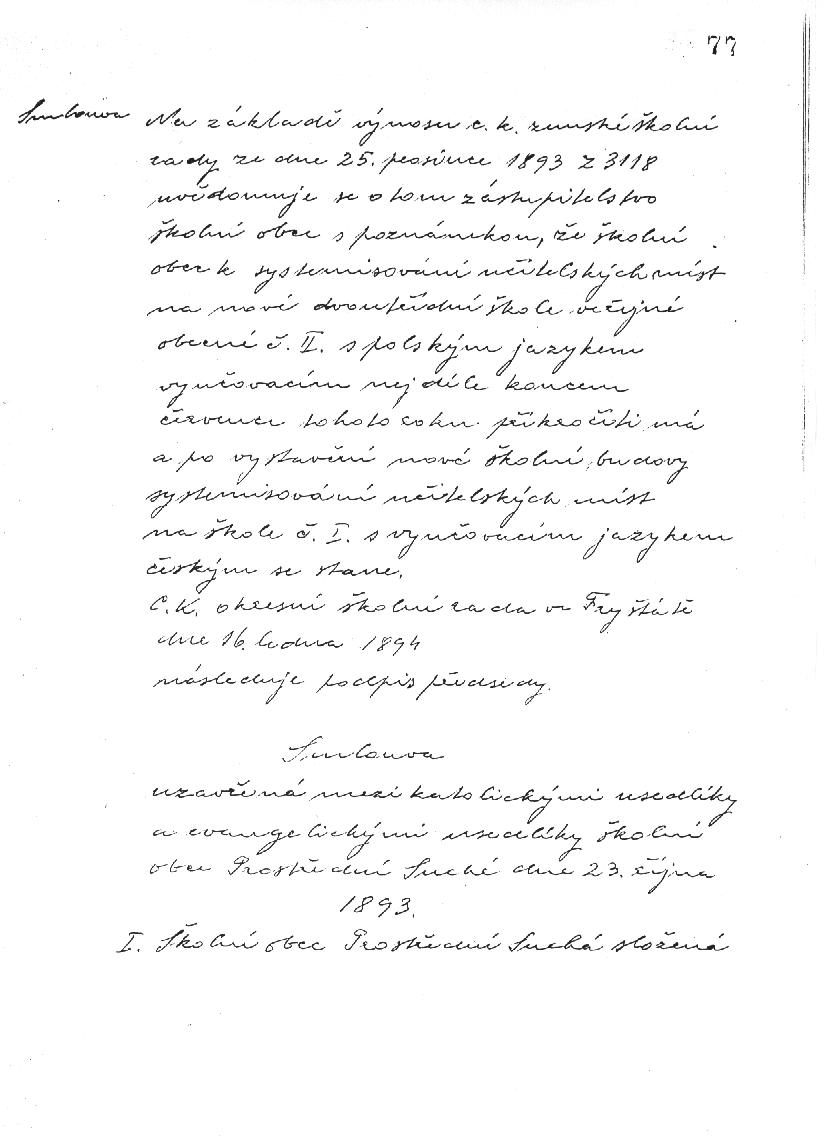 77
Smlouva
Na základě výnosu c. k. zemské školní
rady ze dne 25. prosince 1893 Z 3118
uvědomuje se o tom zástupitelstvo
školní obec s poznámkou, že školní
obec k systemisování učitelských míst
na nové dvoutřídní škole veřejné
obecné č. II. s polským jazykem
vyučovacím nejdéle koncem
července tohoto roku přikročiti má
a po vystavění nové školní budovy
systemisování učitelských míst
na škole č. I. s vyučovacím jazykem
českým se stane.
C. K. okresní školní rada ve Fryštátě
dne 16. ledna 1894
následuje podpis předsedy.
Smlouva
uzavřená mezi katolickými usedlíky
a evangelickými usedlíky školní
obec Prostřední Suché dne 23. října
1893.
I. Školní obec Prostřední Suchá složená